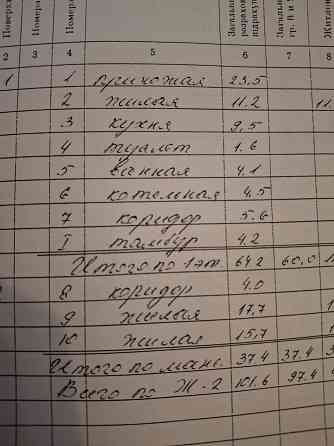 Поверх
Номера
Номера
Загаль
розрахов
підрахун
Загаль
гр. 8 и 9
Жителе
2 3 4 5 6 7 8
1 1 прихожая 23,5
2 жилая 11.2 11.
3 кухня 9,5
4 туалет 1.6
5 ванная 4.1
6 котельная 4.5
7 коридор 5.6
I тамбур 4.2
Итого по 1 эт. 64.2 60,0
8 коридор 4.0
9 жилая 17,7
10 жилая 15,7
Итого по манс. 37.4 37.4
Всего по Ж-2 101.6 97.4